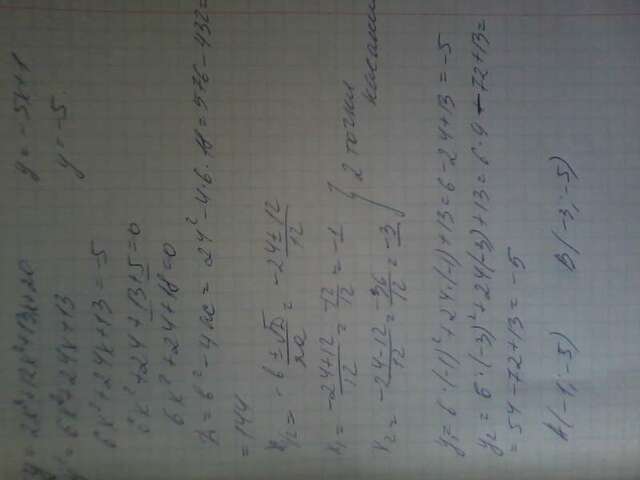 y = 2x³+12x²+13x+20 y = -5x+1
y' = 6x²+24x+13 y' = -5
6x²+24x+13 = -5
6x²+24+13+5=0
6x²+24+18=0
D = b²-4ac = 24²-4·6·18 = 576-432=
= 144
x₁/₂ = -b±√D/2a = -24±12/12
x₁ = -24+12/12 = -12/12 = -1
x₂ = -24-12/12 = -36/12 = -3 } 2 точки касания
y₁ = 6·(-1)²+24·(-1)+13 = 6-24+13 = -5
y₂ = 6·(-3)²+24(-3)+13 = 6·9-72+13=
= 54-72+13 = -5
A(-1; -5) B(-3; -5)